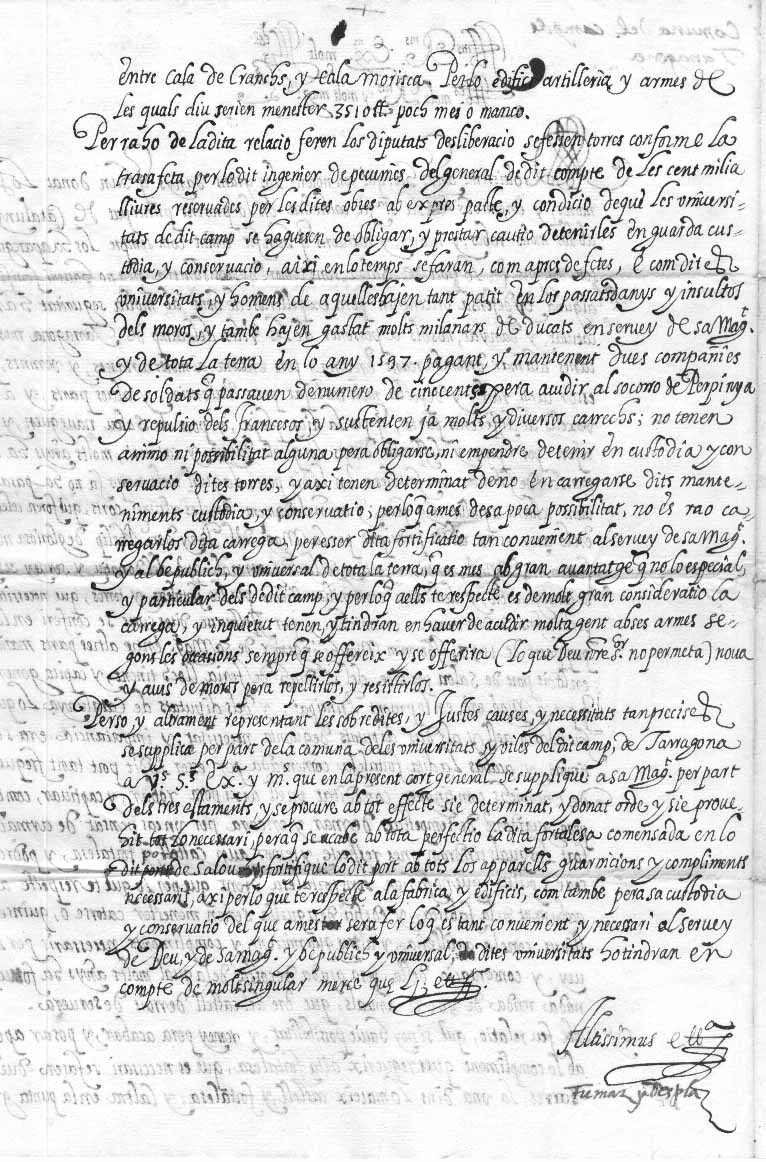 Comuna del camp de
Tarragona
entre cala de Cranchs, y cala morisca Perlo edifici artilleria y armes de
les quals diu serien menester 3510 ll. poch mes o manco.
Per raho de la dita relacio feren los diputats desliberacio se fessen torres conforme la
trasa feta per lo dit ingenier de pecunies del general de dit compte de Les cent milia
lliures reservades per les dites obres ab expres pacte, y condicio deque les vniversi-
tats de dit camp se haguesen de obligar, y prestar cautio de tenirles en guarda cus-
todia, y conservacio, aixi en lo temps se faran, com apres de fetes, E com dites
vniversitats, y homens de aquelles hajen tant patit en los passats danys y insultos
dels moros, y tambe hajen gastat molts milanars de ducats en servey de sa Magt.
y de tota La terra en lo any 1597. pagant, y mantenint dues companies
de soldats q passaven de numero de cinccents pera acudir al socorro de Perpinya
y repulsio dels francesos, y sustenten ja molts y diversos carrechs; no tenen
animo ni possibilitat alguna pera obligarse, ni empendre de tenir en custodia y con
servacio dites torres, y axi tenen determinat de no encarregarse dits mante-
niments custodia, y conservatio; perloq ames de sa poca possibilitat, no es rao ca-
rregarlos dita carrega, per esser dita fortificatio tan convenient al servey de sa Magt.
y al be publich, y vniversal de tota la terra, q es mes ab gran avantatge q no lo especial,
y particular dels de dit camp, y perloq a ells te respecte es de molt gran consideratio la
carrega, y inquietut tenen, y tindran en haver de acudir molta gent ab ses armes se-
gons les occasions sempre q se offereix y se offerira (lo que Deu nre Sr. no permeta) nova
y avis de moros pera repellirlos, y resistirlos.
Perso y altrament representant les sobredites, y Justes causes, y necessitats tan precises
se supplica per part de la comuna de les vniversitats y viles del dit camp, de Tarragona
a vs. Ss. Exa. y ms. que en la present cort general se supplique a sa Magt. per part
dels tres estaments, y se procure ab tot effecte sie determinat, y donat orde y sie prove-
hit tot lo necessari, peraq se acabe ab tota perfectio la dita fortalesa comensada en lo
dit port de Salou, y se fortifique lo dit port ab tots los apparells guarnicions y compliments
necessaris, axi perlo que te respecte a la fabrica, y edificis, com tambe pera sa custodia
y conservatio del que ames sera fer loq es tant convenient y necessari al servey
de Deu, y de sa magt. y be publich y vniversal, dites vniversitats ho tindran en
compte de molt singular merce que Lj. ett.
Altissimus etta
Fumaz y Despla